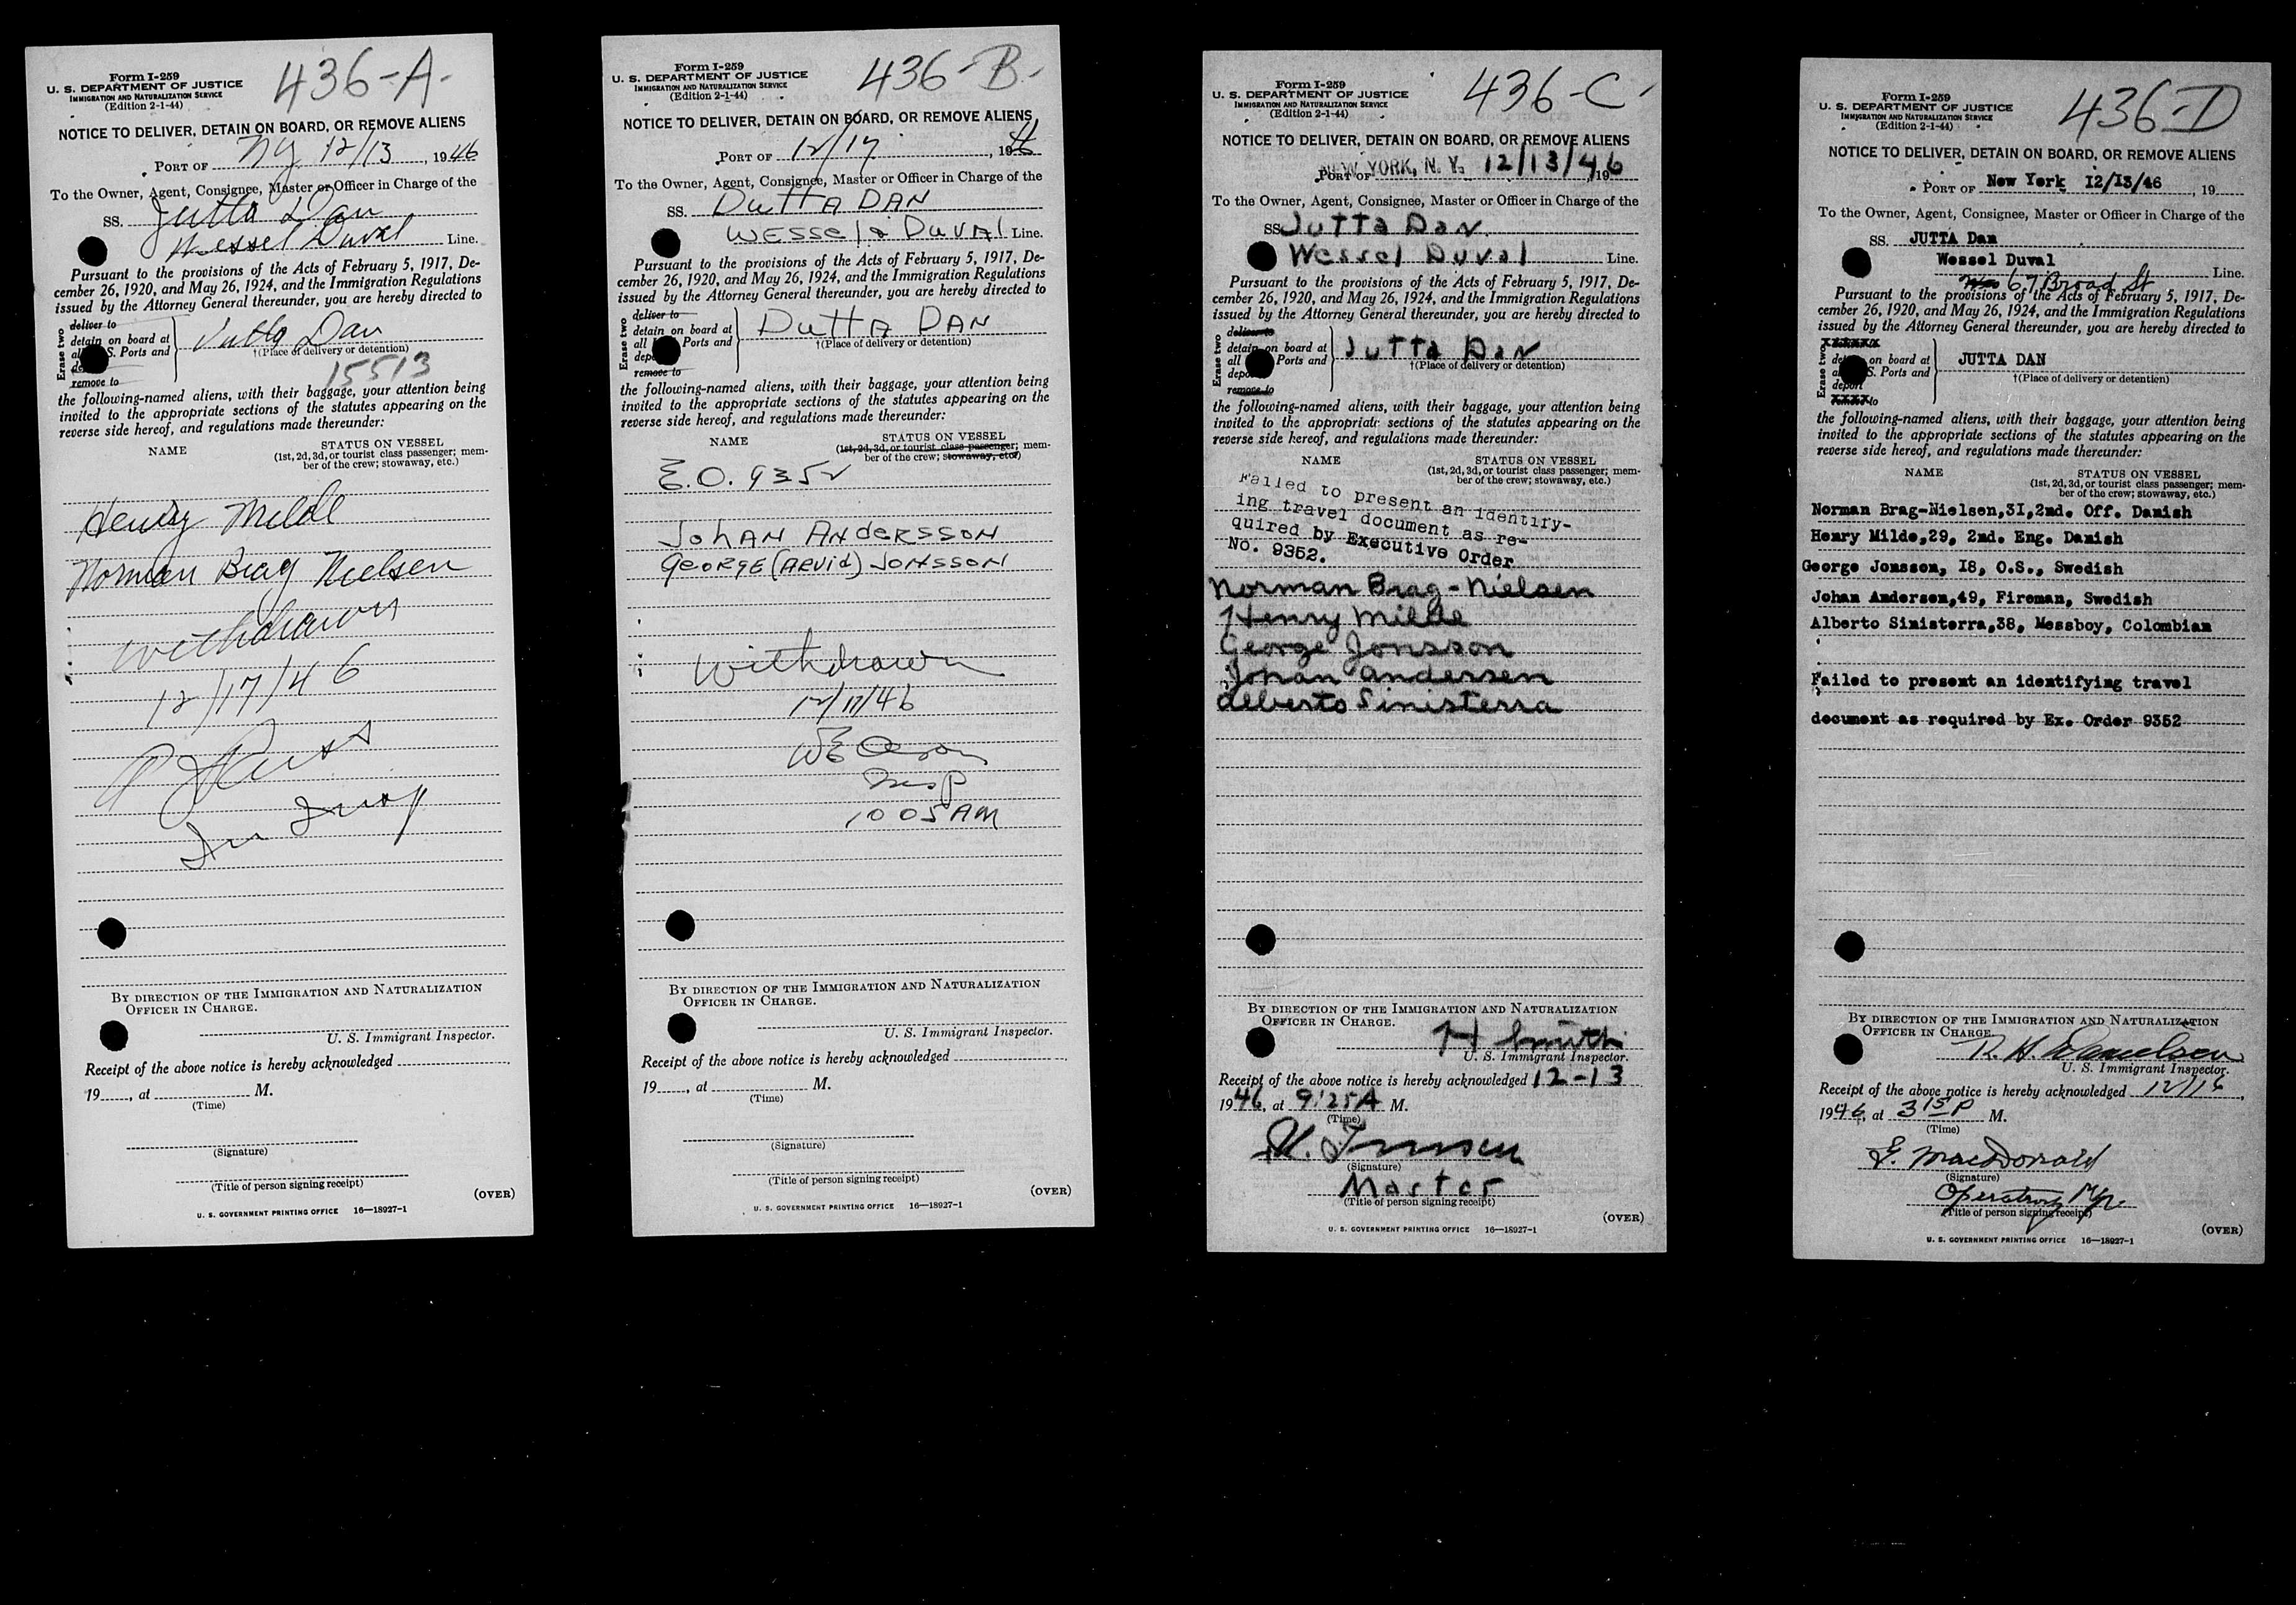 Form I-259
U. S. DEPARTMENT OF JUSTICE
IMMIGRATION AND NATURALIZATION SERVICE
(Edition 2-1-44)
436-A-
NOTICE TO DELIVER, DETAIN ON BOARD, OR REMOVE ALIENS
PORT OF NY 12/13, 1946
To the Owner, Agent, Consignee, Master or Officer in Charge of the
SS. Jutta Dan
Wessel Duval Line.
Pursuant to the provisions of the Acts of February 5, 1917, De-
cember 26, 1920, and May 26, 1924, and the Immigration Regulations
issued by the Attorney General thereunder, you are hereby directed to
Erase two
deliver to
detain on board at
S. Ports and
remove to
Jutta Dan
†(Place of delivery or detention)
15513
the following-named aliens, with their baggage, your attention being
invited to the appropriate sections of the statutes appearing on the
reverse side hereof, and regulations made thereunder:
NAME
STATUS ON VESSEL
(1st, 2d, 3d, or tourist class passenger; mem-
ber of the crew; stowaway, etc.)
Henry Milde
Norman Brag Nielsen
withdrawn
12/17/46
BY DIRECTION OF THE IMMIGRATION AND NATURALIZATION
OFFICER IN CHARGE.
U. S. Immigrant Inspector.
Receipt of the above notice is hereby acknowledged
19, at M.
(Time)
(Signature)
(Title of person signing receipt)
(OVER)
U. S. GOVERNMENT PRINTING OFFICE 16—18927-1
Form I-259
U. S. DEPARTMENT OF JUSTICE
IMMIGRATION AND NATURALIZATION SERVICE
(Edition 2-1-44)
436-B-
NOTICE TO DELIVER, DETAIN ON BOARD, OR REMOVE ALIENS
PORT OF 12/17, 1946
To the Owner, Agent, Consignee, Master or Officer in Charge of the
SS. DuttA DAN
WESSel & DuVAl Line.
Pursuant to the provisions of the Acts of February 5, 1917, De-
cember 26, 1920, and May 26, 1924, and the Immigration Regulations
issued by the Attorney General thereunder, you are hereby directed to
Erase two
deliver to
detain on board at
all Ports and
remove to
DuttA DAN
†(Place of delivery or detention)
the following-named aliens, with their baggage, your attention being
invited to the appropriate sections of the statutes appearing on the
reverse side hereof, and regulations made thereunder:
NAME
STATUS ON VESSEL
(1st, 2d, 3d, or tourist class passenger; mem-
ber of the crew; stowaway, etc.)
E.O. 9352
JOHAN ANDERSSON
GEORGE (ARVID) JONSSON
Withdrawn
12/17/46
10 05 AM
BY DIRECTION OF THE IMMIGRATION AND NATURALIZATION
OFFICER IN CHARGE.
U. S. Immigrant Inspector.
Receipt of the above notice is hereby acknowledged
19, at M.
(Time)
(Signature)
(Title of person signing receipt)
(OVER)
U. S. GOVERNMENT PRINTING OFFICE 16—18927-1
Form I-259
U. S. DEPARTMENT OF JUSTICE
IMMIGRATION AND NATURALIZATION SERVICE
(Edition 2-1-44)
436-C-
NOTICE TO DELIVER, DETAIN ON BOARD, OR REMOVE ALIENS
PORT OF NEW YORK, N. Y. 12/13/46, 19
To the Owner, Agent, Consignee, Master or Officer in Charge of the
SS. Jutta Dan
Wessel Duval Line.
Pursuant to the provisions of the Acts of February 5, 1917, De-
cember 26, 1920, and May 26, 1924, and the Immigration Regulations
issued by the Attorney General thereunder, you are hereby directed to
Erase two
deliver to
detain on board at
all Ports and
remove to
Jutta Dan
†(Place of delivery or detention)
the following-named aliens, with their baggage, your attention being
invited to the appropriate sections of the statutes appearing on the
reverse side hereof, and regulations made thereunder:
NAME
STATUS ON VESSEL
(1st, 2d, 3d, or tourist class passenger; mem-
ber of the crew; stowaway, etc.)
Failed to present an identify-
ing travel document as re-
quired by Executive Order
No. 9352.
Norman Brag-Nielsen
Henry Milde
George Jonsson
Johan Andersen
Alberto Sinisterra
BY DIRECTION OF THE IMMIGRATION AND NATURALIZATION
OFFICER IN CHARGE.
H Smith
U. S. Immigrant Inspector.
Receipt of the above notice is hereby acknowledged 12-13
1946, at 9:25A M.
(Time)
(Signature)
Master
(Title of person signing receipt)
(OVER)
U. S. GOVERNMENT PRINTING OFFICE 16—18927-1
Form I-259
U. S. DEPARTMENT OF JUSTICE
IMMIGRATION AND NATURALIZATION SERVICE
(Edition 2-1-44)
436-D
NOTICE TO DELIVER, DETAIN ON BOARD, OR REMOVE ALIENS
PORT OF New York 12/13/46, 19
To the Owner, Agent, Consignee, Master or Officer in Charge of the
SS. JUTTA Dan
Wessel Duval
67 Broad St Line.
Pursuant to the provisions of the Acts of February 5, 1917, De-
cember 26, 1920, and May 26, 1924, and the Immigration Regulations
issued by the Attorney General thereunder, you are hereby directed to
Erase two
on board at
S. Ports and
deport
JUTTA DAN
†(Place of delivery or detention)
the following-named aliens, with their baggage, your attention being
invited to the appropriate sections of the statutes appearing on the
reverse side hereof, and regulations made thereunder:
NAME
STATUS ON VESSEL
(1st, 2d, 3d, or tourist class passenger; mem-
ber of the crew; stowaway, etc.)
Norman Brag-Nielsen,31,2nd. Off. Danish
Henry Milde,29, 2nd. Eng. Danish
George Jonsson, 18, O.S., Swedish
Johan Andersen,49, Fireman, Swedish
Alberto Sinisterra,38, Messboy, Colombian
Failed to present an identifying travel
document as required by Ex. Order 9352
BY DIRECTION OF THE IMMIGRATION AND NATURALIZATION
OFFICER IN CHARGE.
U. S. Immigrant Inspector.
Receipt of the above notice is hereby acknowledged 12/16,
1946, at 3 15 P M.
(Time)
E. MacDonald
(Signature)
Operating Mgr.
(Title of person signing receipt)
(OVER)
U. S. GOVERNMENT PRINTING OFFICE 16—18927-1